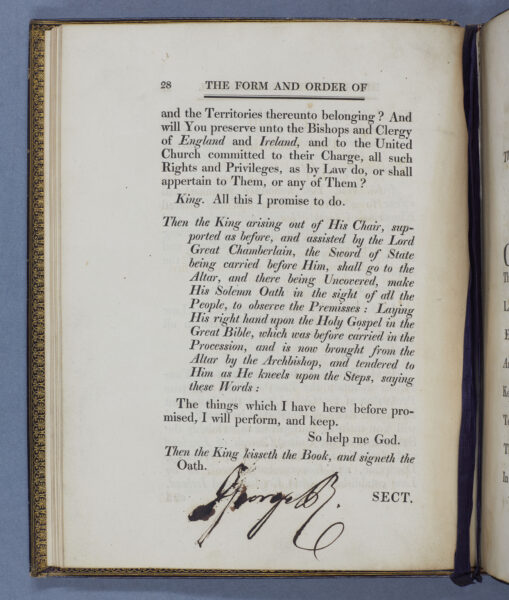 28 THE FORM AND ORDER OF
and the Territories thereunto belonging ? And
will You preserve unto the Bishops and Clergy
of England and Ireland, and to the United
Church committed to their Charge, all such
Rights and Privileges, as by Law do, or shall
appertain to Them, or any of Them ?
King. All this I promise to do.
Then the King arising out of His Chair, sup-
ported as before, and assisted by the Lord
Great Chamberlain, the Sword of State
being carried before Him, shall go to the
Altar, and there being Uncovered, make
His Solemn Oath in the sight of all the
People, to observe the Premisses : Laying
His right hand upon the Holy Gospel in the
Great Bible, which was before carried in the
Procession, and is now brought from the
Altar by the Archbishop, and tendered to
Him as He kneels upon the Steps, saying
these Words :
The things which I have here before pro-
mised, I will perform, and keep.
So help me God.
Then the King kisseth the Book, and signeth the
Oath.
George R.
SECT.